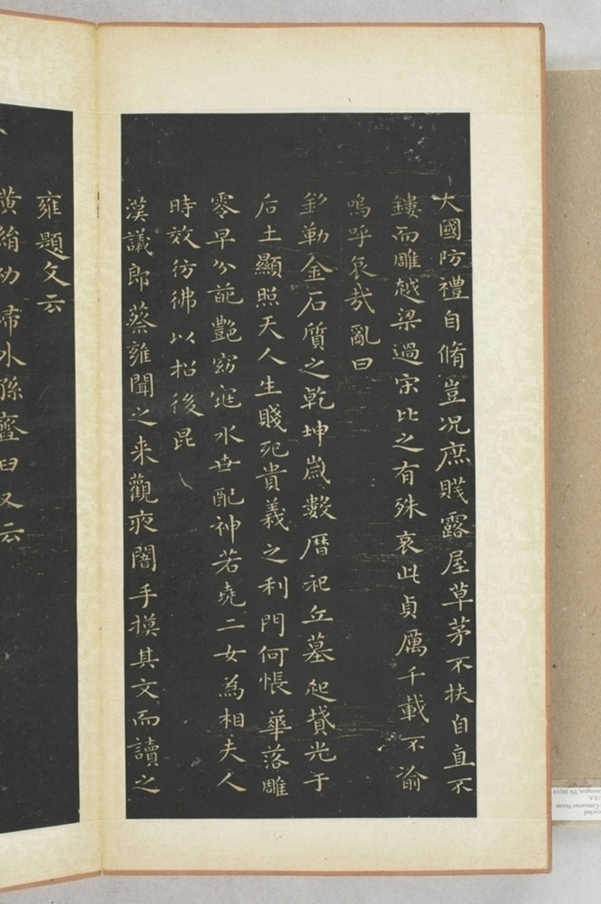 大國防禮自脩豈况庶賤露屋草茅不扶自直不
鏤而雕越梁過宋比之有殊哀此貞厲千載不渝
嗚呼哀哉亂曰
銘勒金石質之乾坤歲數曆祀丘墓起墳光于
后土顯照天人生賤死貴義之利門何悵華落雕
零早分葩艷窈窕永世配神若堯二女為相夫人
時效彷彿以招後昆
漢議郎蔡雍聞之来觀夜闇手摸其文而讀之
雍題文云
黃絹幼婦外孫齏臼又云